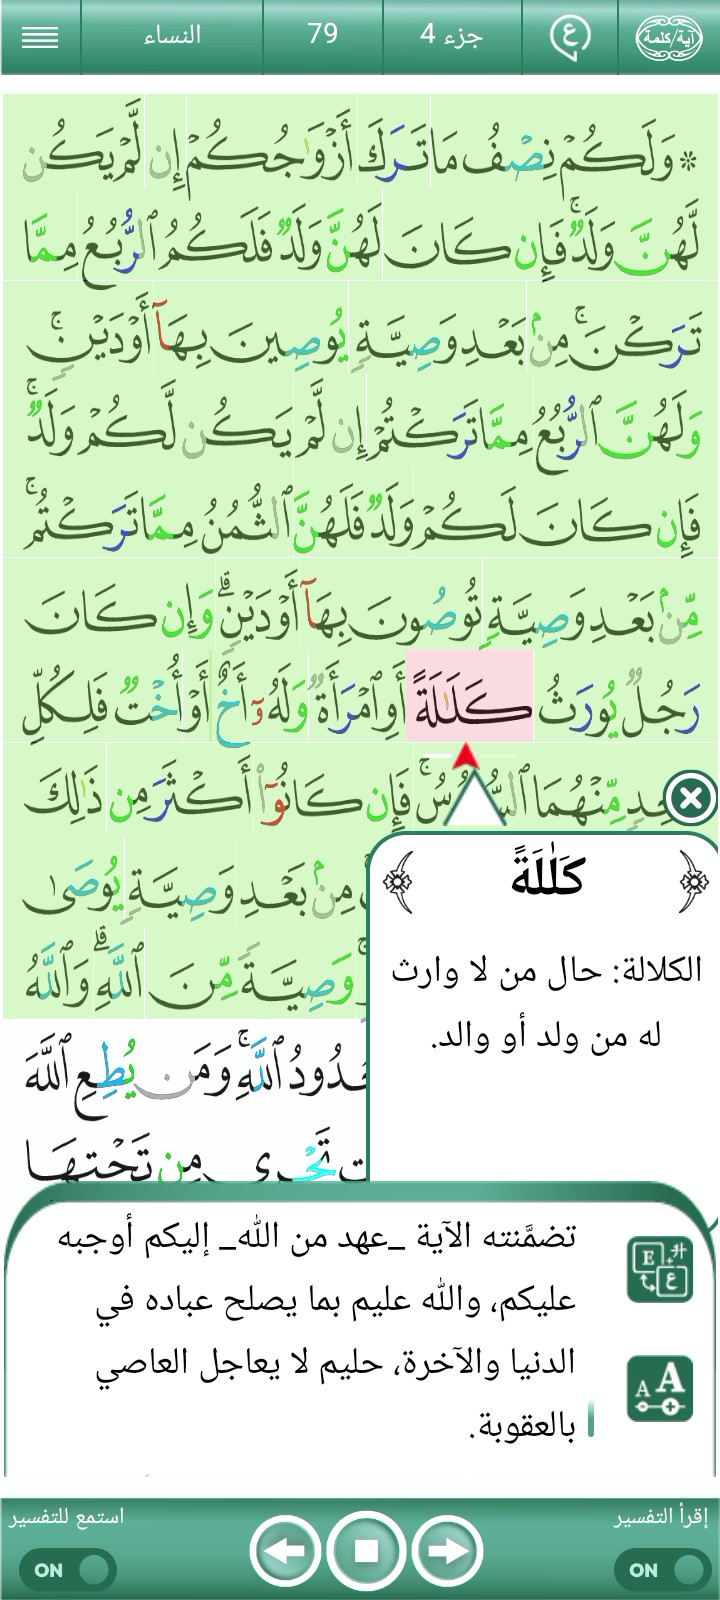 آية/كلمة
ع
جزء 4
79
النساء
۞ وَلَكُمۡ نِصۡفُ مَا تَرَكَ أَزۡوَٰجُكُمۡ إِن لَّمۡ يَكُن
لَّهُنَّ وَلَدٞۚ فَإِن كَانَ لَهُنَّ وَلَدٞ فَلَكُمُ ٱلرُّبُعُ مِمَّا
تَرَكۡنَۚ مِنۢ بَعۡدِ وَصِيَّةٖ يُوصِينَ بِهَآ أَوۡ دَيۡنٖۚ
وَلَهُنَّ ٱلرُّبُعُ مِمَّا تَرَكۡتُمۡ إِن لَّمۡ يَكُن لَّكُمۡ وَلَدٞۚ
فَإِن كَانَ لَكُمۡ وَلَدٞ فَلَهُنَّ ٱلثُّمُنُ مِمَّا تَرَكۡتُمۚ
مِّنۢ بَعۡدِ وَصِيَّةٖ تُوصُونَ بِهَآ أَوۡ دَيۡنٖۗ وَإِن كَانَ
رَجُلٞ يُورَثُ كَلَٰلَةً أَوِ ٱمۡرَأَةٞ وَلَهُۥٓ أَخٌ أَوۡ أُخۡتٞ فَلِكُلِّ
مِّنۡهُمَا ٱلسُّدُسُۚ فَإِن كَانُوٓاْ أَكۡثَرَ مِن ذَٰلِكَ
مِنۢ بَعۡدِ وَصِيَّةٖ يُوصَىٰ
وَصِيَّةٗ مِّنَ ٱللَّهِۗ وَٱللَّهُ
حُدُودُ ٱللَّهِۚ وَمَن يُطِعِ ٱللَّهَ
تَجۡرِي مِن تَحۡتِهَا
كَلَٰلَةً
الكلالة: حال من لا وارث
له من ولد أو والد.
تضمَّنته الآية _عهد من الله_ إليكم أوجبه
عليكم، والله عليم بما يصلح عباده في
الدنيا والآخرة، حليم لا يعاجل العاصي
بالعقوبة.
E
ع
A A
إقرأ التفسير
استمع للتفسير
ON
ON